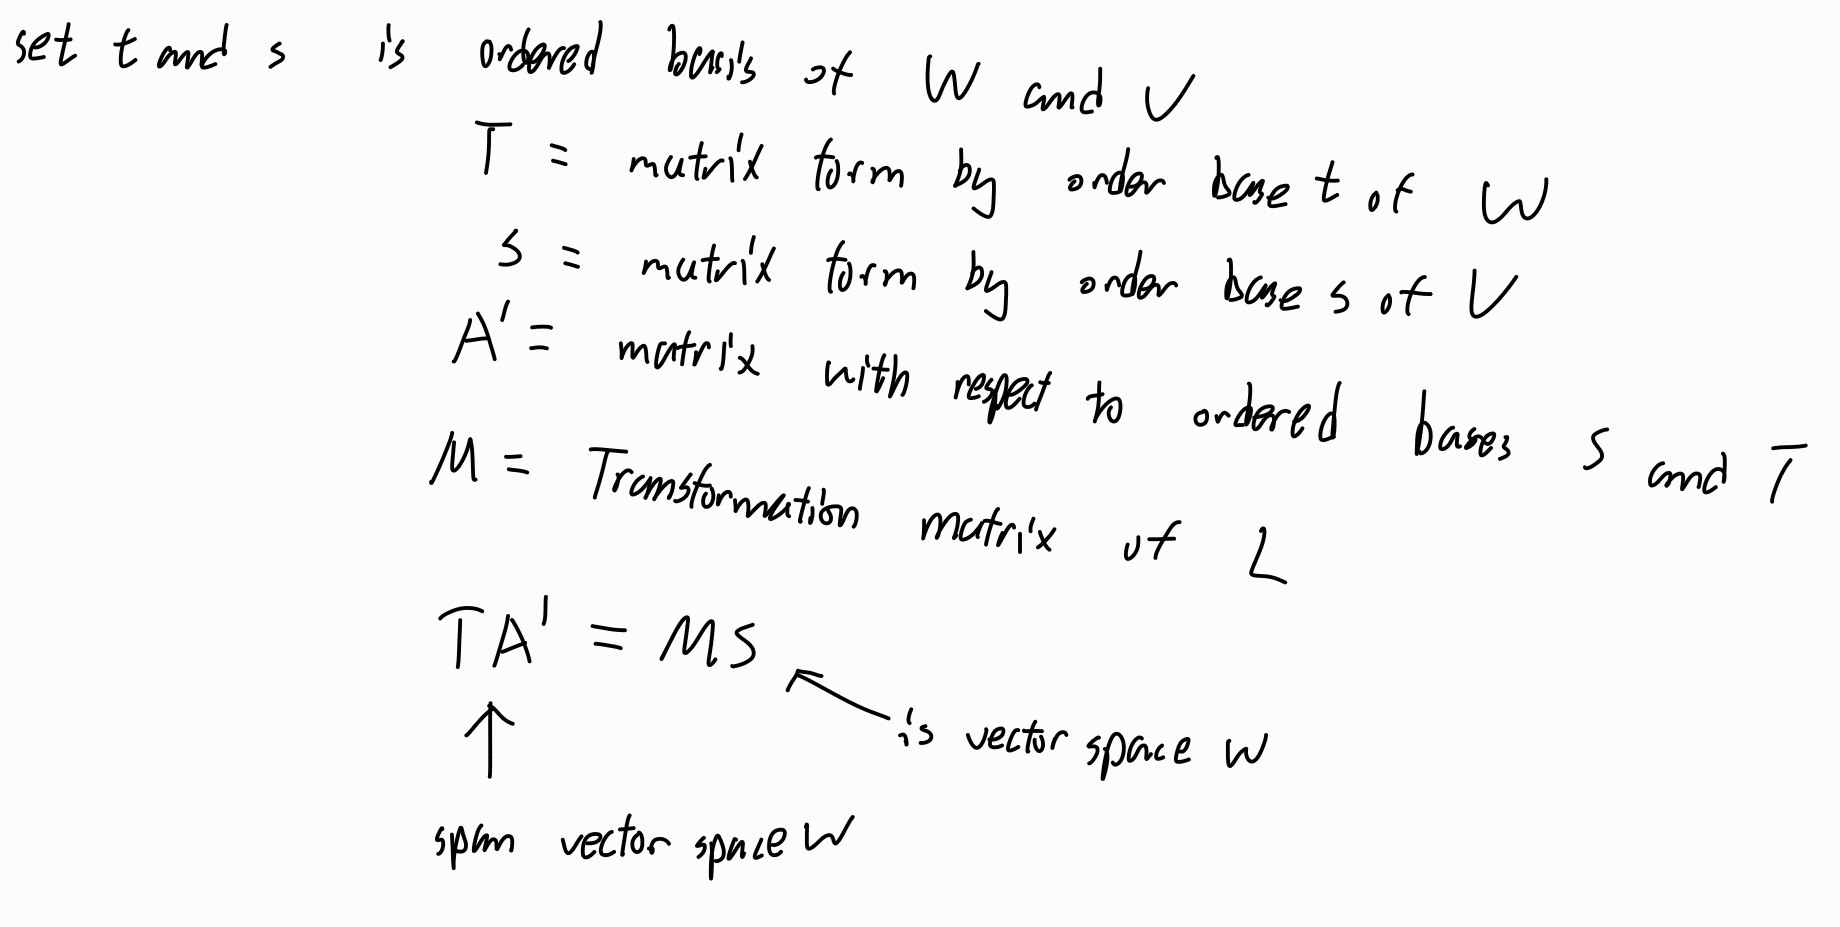 set t and s is ordered basis of W and V
T = matrix form by order base t of W
S = matrix form by order base s of V
A' = matrix with respect to ordered bases S and T
M = Transformation matrix of L
TA' = MS
is vector space W
span vector space W